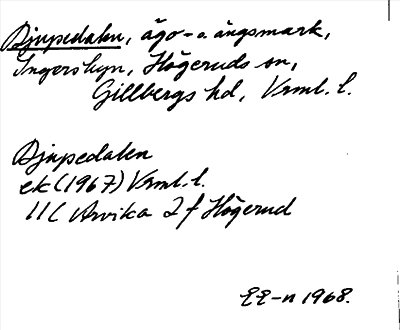 Djupedalen, ägo- o. ängsmark,
Ingersbyn, Högeruds sn,
Gillbergs hd, Vrml. l.
Djupedalen
ek (1967) Vrml. l.
11C Arvika 2f Högerud
EE-n 1968.